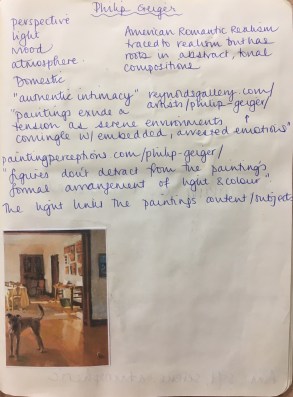 Philip Geiger
perspective
light
mood
atmosphere.
Domestic
American Romantic Realism
traced to realism but has
roots in abstract, tonal
compositions
"authentic intimacy" reynoldsgallery.com/
artists/philip-geiger/
"paintings exude a
tension as serene environments
comingle w/ embedded, arrested emotions"
paintingperceptions.com/philip-geiger/
"figures don't detract from the painting's
formal arrangement of light & colour"
The light links the paintings content/subjects